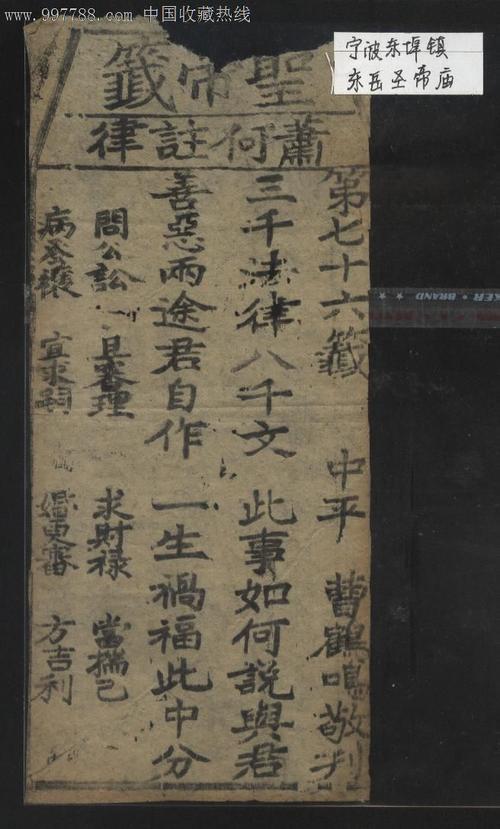 www.997788.com 中国收藏热线
宁波东埠镇
东岳圣帝庙
聖帝籤
蕭何註律
第七十六籤 中平 曹鶴鳴敬刋
三千法律八千文 此事如何說與君
善惡兩途君自作 一生禍福此中分
問公訟 且審理 求財禄 當揣己
病 宜求嗣 婚更審 方吉利
BRAND